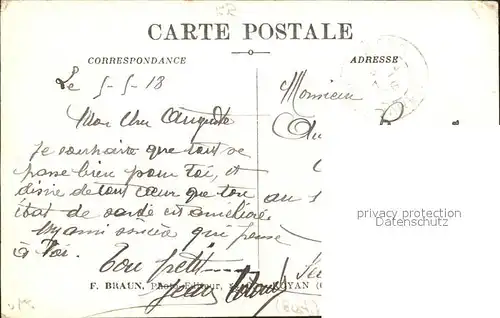 CARTE POSTALE
CORRESPONDANCE
ADRESSE
Le 5-5-18
Monsieur
Mon cher Auguste
Je souhaite que tout se
passe bien pour toi, et
désire de tout cœur que ton
au
état de santé est améliorée
privacy protection
Datenschutz
ami sincère qui pense
à Toi.
Ton petit
F. BRAUN, Photo-Editeur, ROYAN
Jean